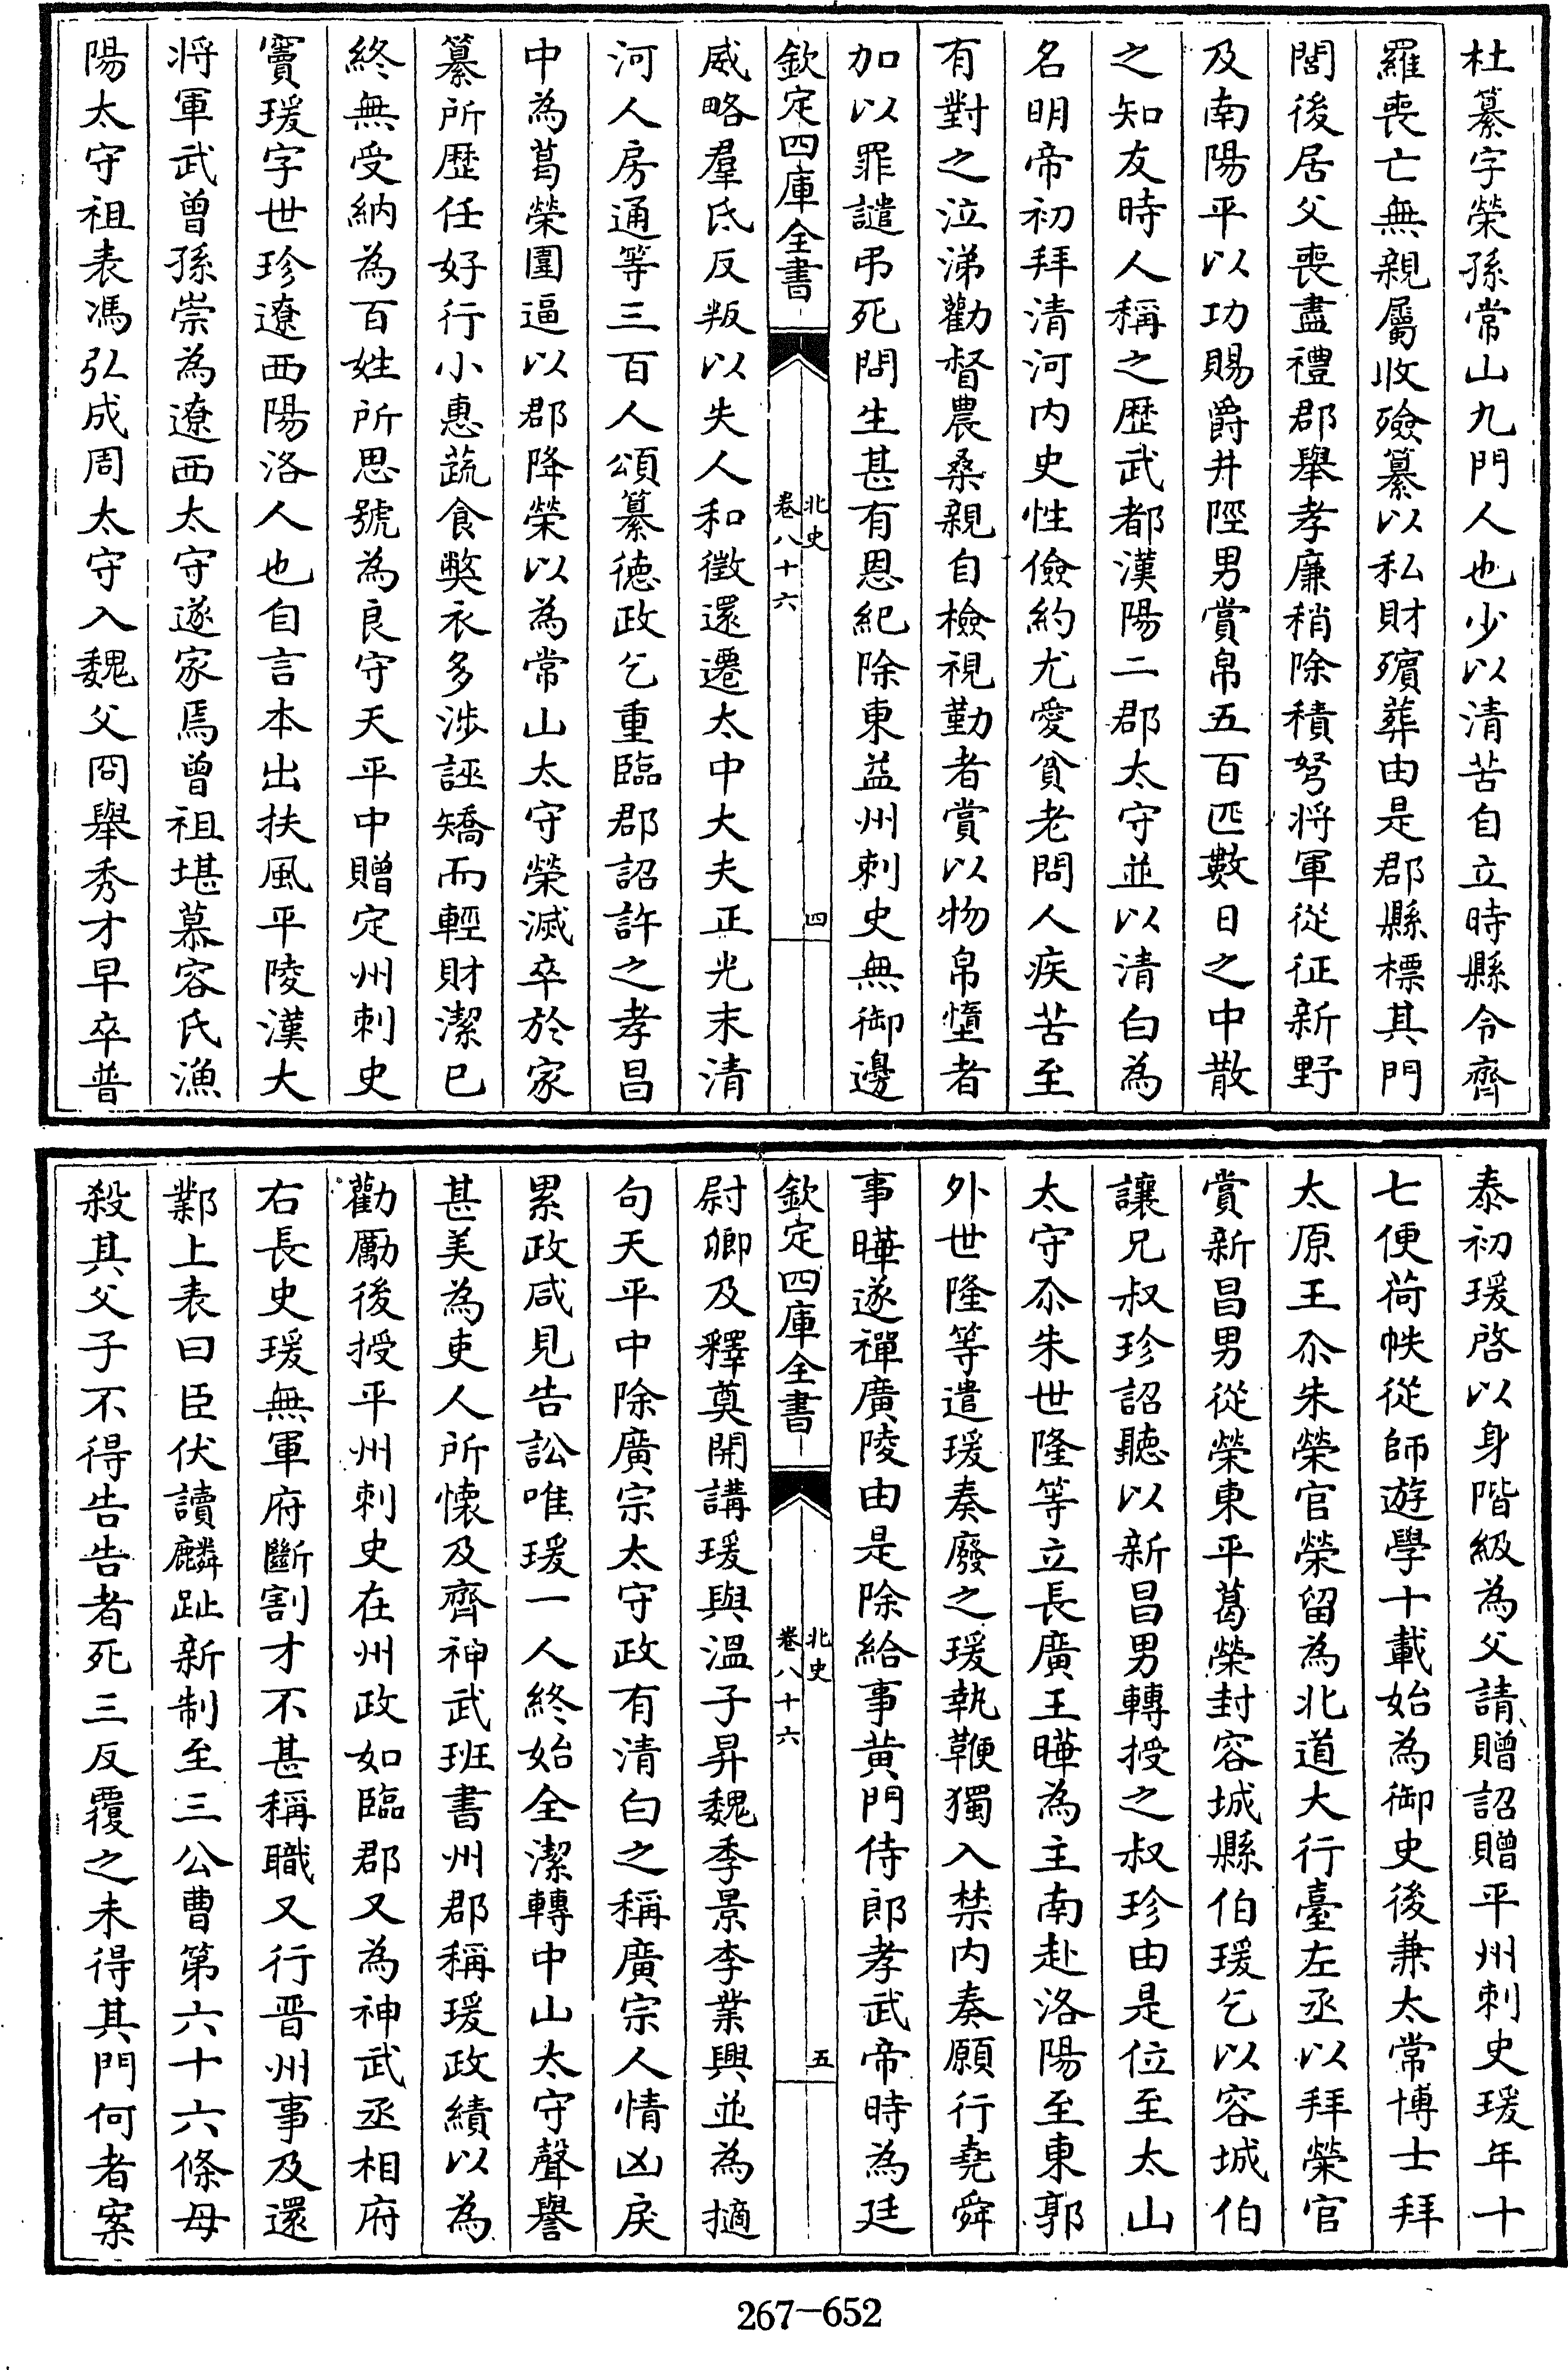 杜纂字榮孫常山九門人也少以清苦自立時縣令齊
羅喪亡無親屬收殮纂以私財殯葬由是郡縣標其門
閭後居父喪盡禮郡舉孝廉稍除積弩將軍從征新野
及南陽平以功賜爵井陘男賞帛五百匹數日之中散
之知友時人稱之歴武都漢陽二郡太守並以清白為
名明帝初拜清河内史性儉約尤愛貧老問人疾苦至
有對之泣涕勸督農桑親自檢視勤者賞以物帛惰者
加以罪譴弔死問生甚有恩紀除東益州刺史無御邊
欽定四庫全書
北史
卷八十六
四
威略羣氐反叛以失人和徵還遷太中大夫正光末清
河人房通等三百人頌纂徳政乞重臨郡詔許之孝昌
中為葛榮圍逼以郡降榮以為常山太守榮滅卒於家
纂所歴任好行小惠蔬食弊衣多涉誣矯而輕財潔已
終無受納為百姓所思號為良守天平中贈定州刺史
竇瑗字世珍遼西陽洛人也自言本出扶風平陵漢大
將軍武曾孫崇為遼西太守遂家焉曾祖堪慕容氏漁
陽太守祖表馮弘成周太守入魏父冏舉秀才早卒普
泰初瑗啓以身階級為父請贈詔贈平州刺史瑗年十
七便荷帙從師遊學十載始為御史後兼太常博士拜
太原王尒朱榮官榮留為北道大行臺左丞以拜榮官
賞新昌男從榮東平葛榮封容城縣伯瑗乞以容城伯
讓兄叔珍詔聽以新昌男轉授之叔珍由是位至太山
太守尒朱世隆等立長廣王曄為主南赴洛陽至東郭
外世隆等遣瑗奏廢之瑗執鞭獨入禁内奏願行堯舜
事曄遂禪廣陵由是除給事黄門侍郎孝武帝時為廷
欽定四庫全書
北史
卷八十六
五
尉卿及釋奠開講瑗與溫子昇魏季景李業興並為摘
句天平中除廣宗太守政有清白之稱廣宗人情凶戾
累政咸見告訟唯瑗一人終始全潔轉中山太守聲譽
甚美為吏人所懐及齊神武班書州郡稱瑗政績以為
勸勵後授平州刺史在州政如臨郡又為神武丞相府
右長史瑗無軍府斷割才不甚稱職又行晋州事及還
鄴上表曰臣伏讀麟趾新制至三公曹第六十六條母
殺其父子不得告告者死三反覆之未得其門何者案
267-652